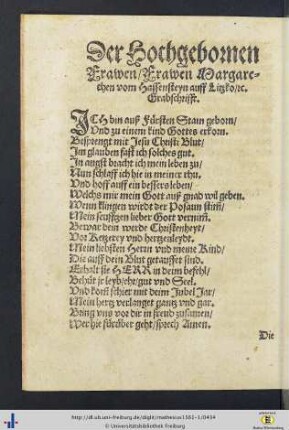 Der Hochgebornen
Frawen / Frawen Margare-
then vom Hassensteyn auff Litzko / ꝛc.
Grabschrifft.
ICH bin auß Fürsten Stam geborn /
Vnd zu einem kind Gottes erkorn.
Besprengt mit Jesu Christi Blut /
Im glauben fast ich solches gut.
In angst bracht ich mein leben zu /
Nun schlaff ich hie in meiner rhu.
Vnd hoff auff ein bessers leben /
Welchs mir mein Gott auß gnad wil geben.
Wenn klingen wirdt der Posaun stim /
Mein seufftzen lieber Gott vernim.
Bewar dein werde Christenheyt /
Vor Ketzerey vnd hertzenleydt.
Mein liebsten Herrn vnd meine Kind /
Die auff dein Blut getauffet sind.
Erhalt sie HERR in deim befehl /
Behüt jr leyb / ehr / gut vnd Seel.
Vnd kom schier mit deim Jubel Jar /
Mein hertz verlanget gantz vnd gar.
Bring vns vor dir in freud zusamen /
Wer hie fürüber geht / sprech Amen.
Die
http://dl.ub.uni-freiburg.de/diglit/mathesius1562-1/0434
© Universitätsbibliothek Freiburg